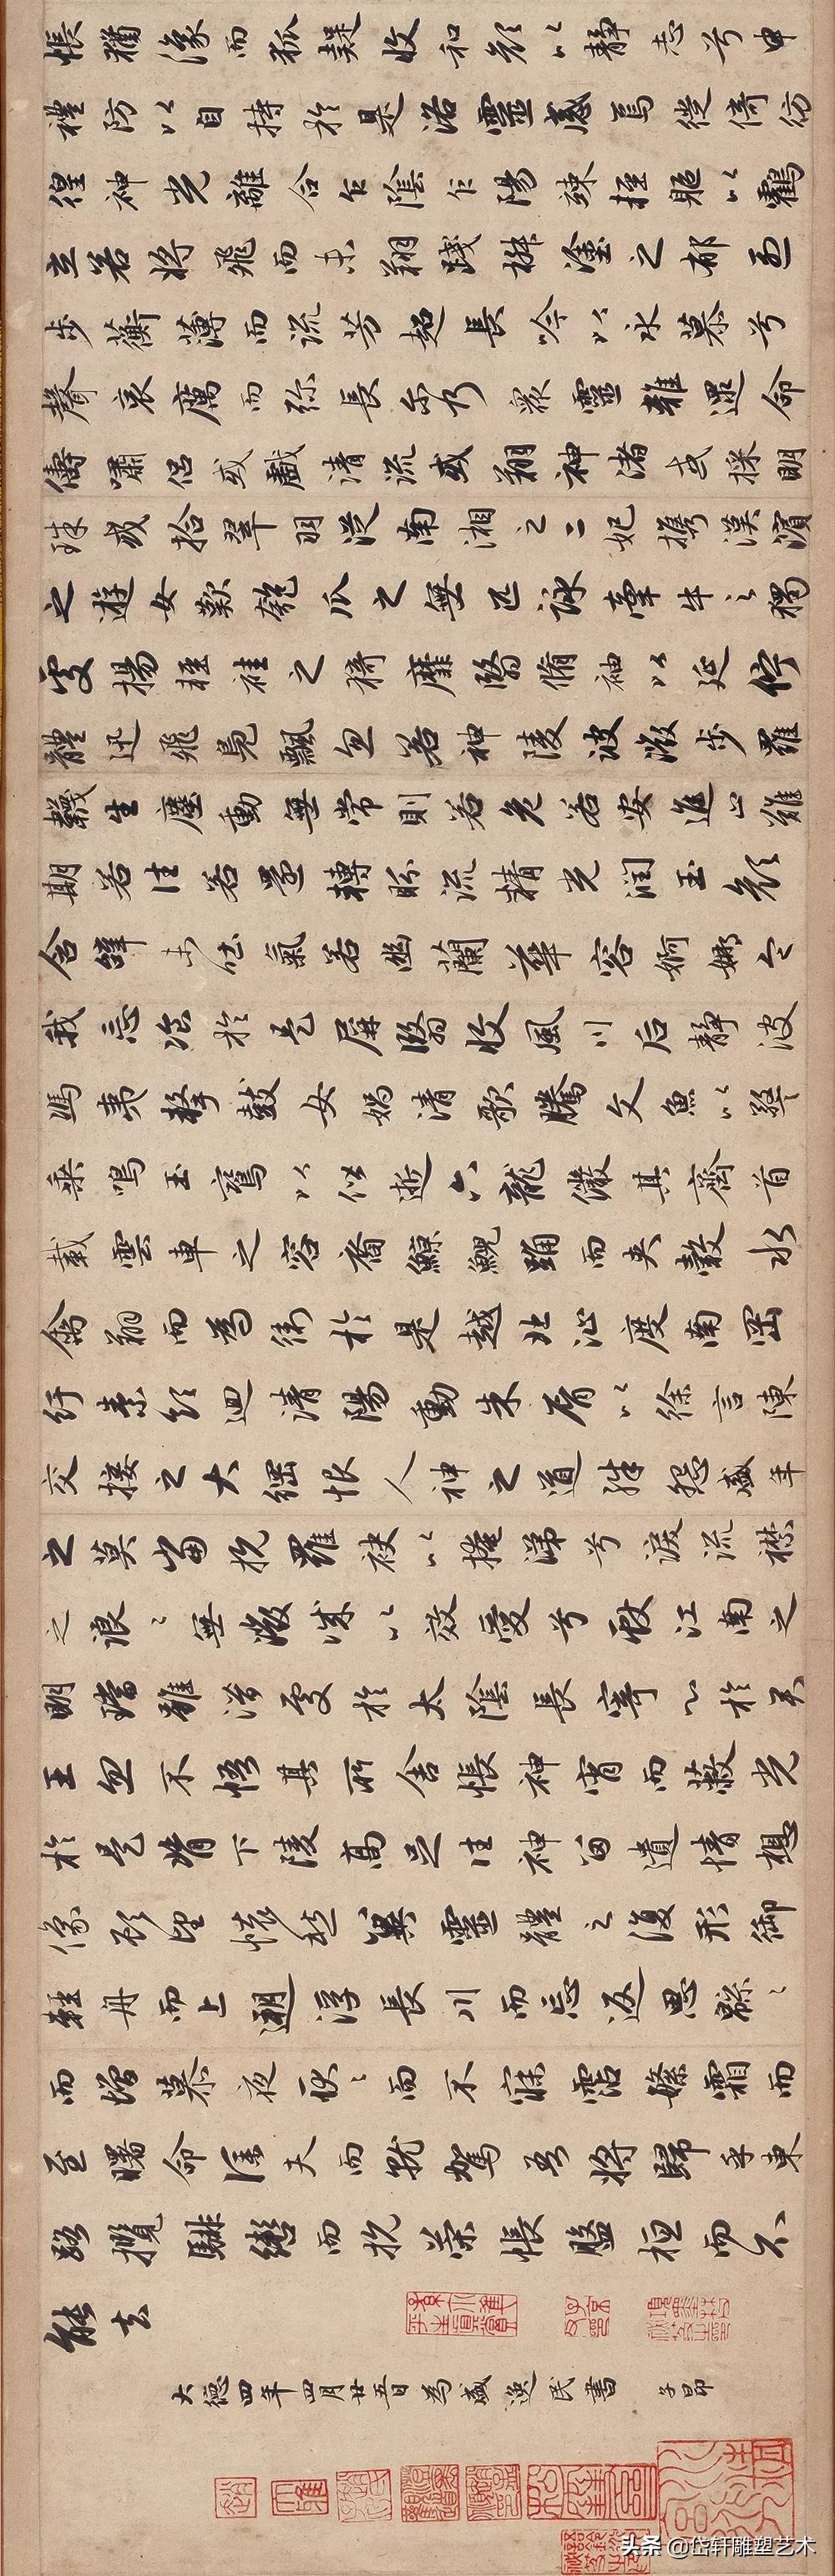 悵猶豫而狐疑收和顏以靜志兮申
禮防以自持於是洛靈感焉徙倚彷
徨神光離合乍陰乍陽竦輕軀以鶴
立若將飛而未翔踐椒塗之郁烈
步蘅薄而流芳超長吟以永慕兮
聲哀厲而弥長尒乃眾靈雜遝命
儔嘯侶或戲清流或翔神渚或採明
珠或拾翠羽從南湘之二妃攜漢濱
之遊女歎匏瓜之無匹詠牽牛之獨
處揚輕袿之猗靡翳脩袖以延佇
體迅飛鳧飄忽若神陵波微步羅
韈生塵動無常則若危若安進止難
期若往若還轉眄流精光潤玉顏
含辭未吐氣若幽蘭華容婀娜令
我忘飡於是屏翳收風川后靜波
馮夷擊鼓女媧清歌騰文魚以警
乘鳴玉鸞以偕逝六龍儼其齊首
載雲車之容裔鯨鯢踊而夾轂水
禽翔而為衛於是越北沚度南岡
紆素領迴清陽動朱脣以徐言陳
交接之大綱恨人神之道殊怨盛年
之莫當抗羅袂以掩涕兮淚流襟
之浪〻無微誠以效愛兮獻江南之
明璫雖潛處於太陰長寄心於君
王忽不悟其所舍悵神宵而蔽光
於是背下陵高足往神留遺情想
像顧望懷愁冀靈體之復形御
輕舟而上遡浮長川而忘返思緜〻
而增慕夜耿〻而不寐霑繁霜而
至曙命僕夫而就駕吾將歸乎東
路攬騑轡而抗策悵盤桓而不
能去
大德四年四月廿五日為盛逸民書 子昂
头条 @岱轩雕塑艺术